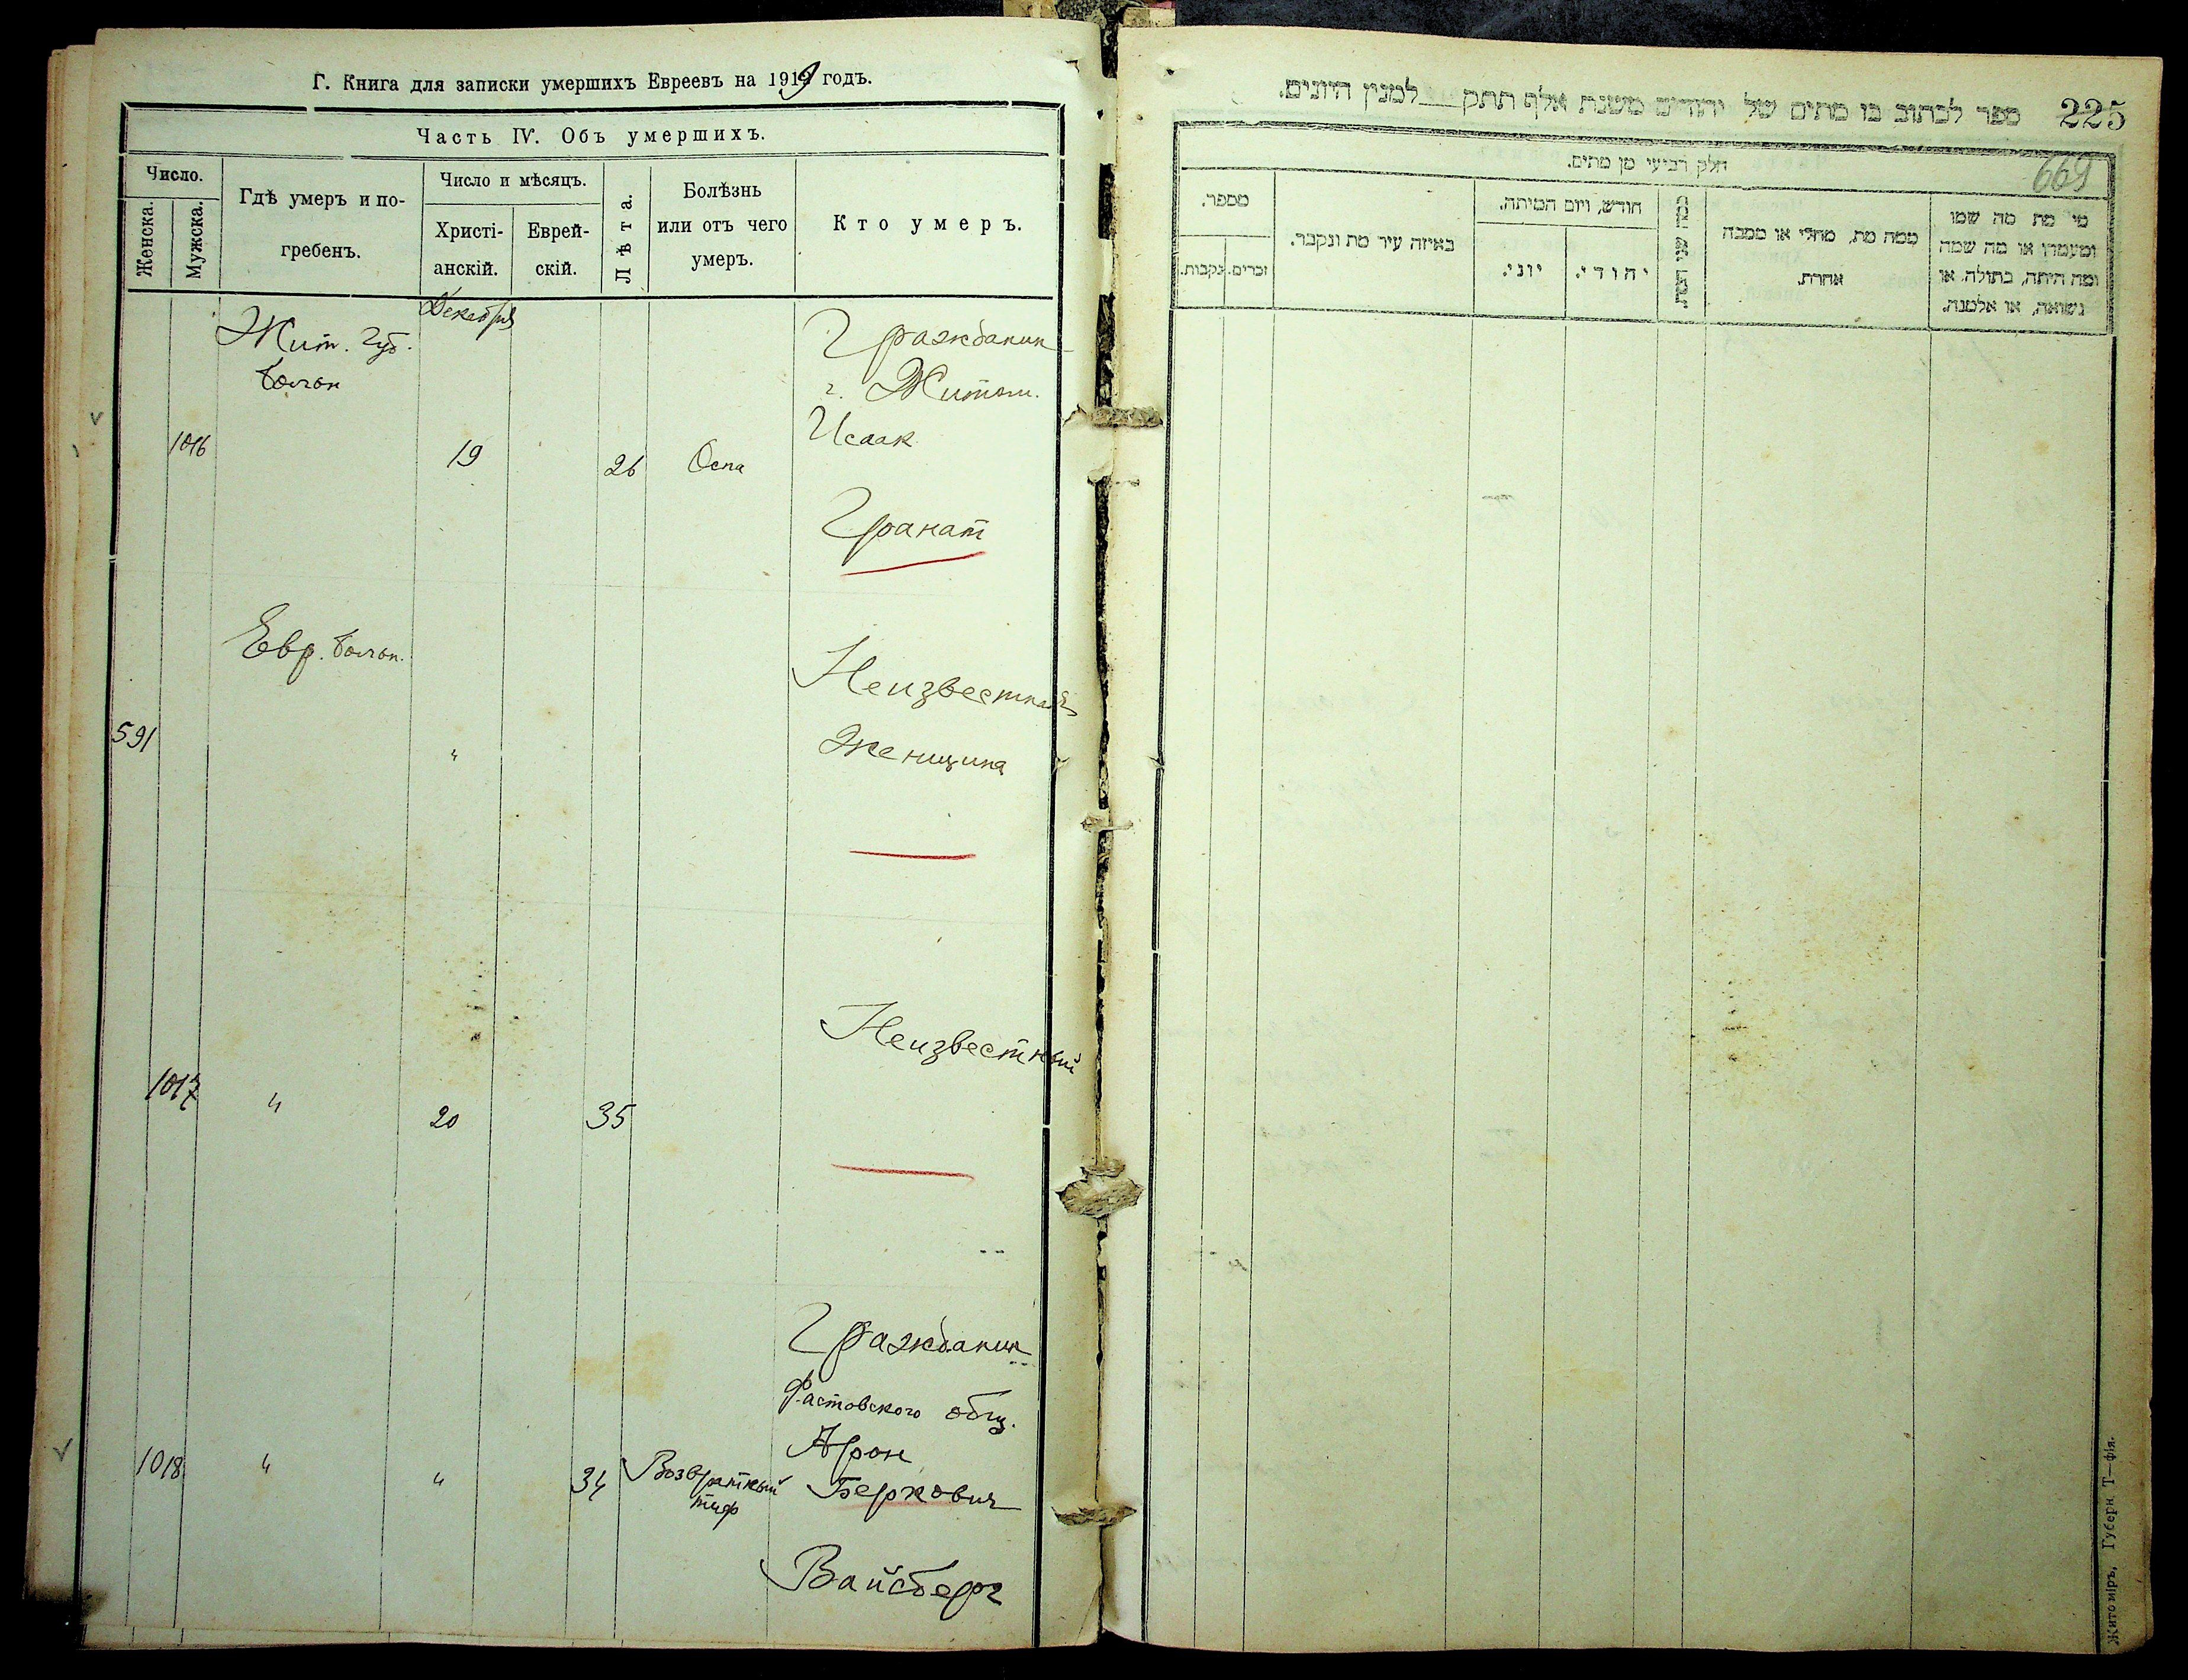 Г. Книга для записки умершихъ Евреевъ на 1919 годъ.
Часть IV. Объ умершихъ.
Число.
Женска.
Мужска.
Гдѣ умеръ и по-
гребенъ.
Число и мѣсяцъ.
Христі-
анскій.
Еврей-
скій.
Лѣта.
Болѣзнь
или отъ чего
умеръ.
Кто умеръ.
Декабря
Жит. Губ.
болон
1016
19
26
Оспа
Гражданин
г. Житом.
Исаак
Гранат
591
Евр. болон.
"
Неизвестная
Женщина
1017
"
20
35
Неизвестный
1018
"
"
34
Возвратный
тиф
Гражданин
Фастовского общ.
Арон
Беркович
Вайсберг
225
ספר לכתוב בו מתים של יהודים משנת אלף תתק למנין היונים.
669
חלק רביעי מן מתים.
מספר.
זכרים.
נקבות.
באיזה עיר מת ונקבר.
חודש, ויום המיתה.
יוני.
יהודי.
ממה מת, מחלי או ממכה
אחרת.
מי מת מה שמו
ומעמדו או מה שמה
ומה היתה, בתולה או
נשואה, או אלמנה.
Житоміръ, Губерн. Т—фія.